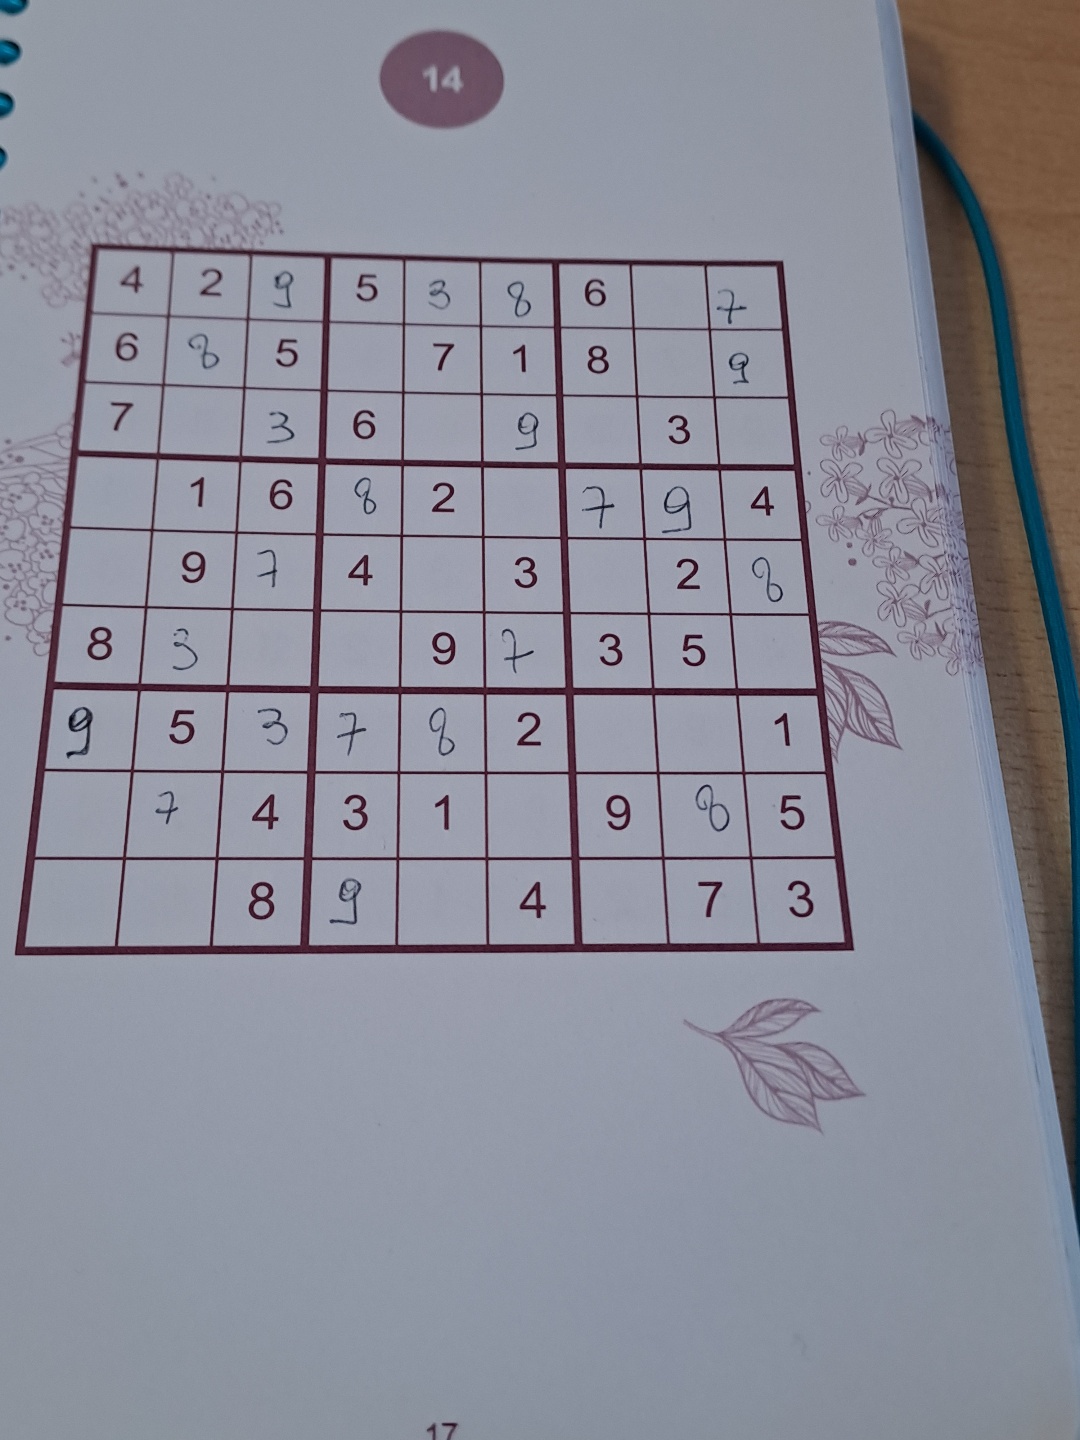 14
4 2 9 5 3 8 6 7
6 8 5 7 1 8 9
7 3 6 9 3
1 6 8 2 7 9 4
9 7 4 3 2 8
8 3 9 7 3 5
9 5 3 7 8 2 1
7 4 3 1 9 8 5
8 9 4 7 3
17